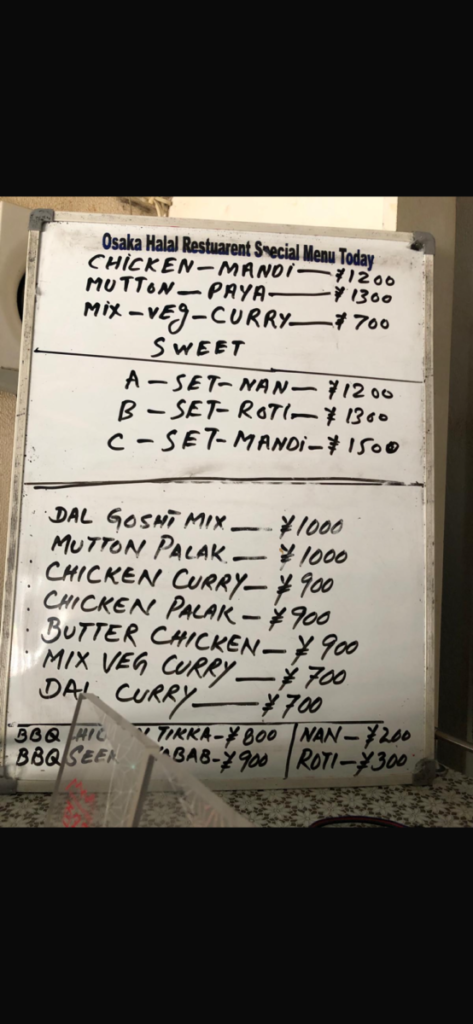 Osaka Halal Restuarent Special Menu Today
CHICKEN-MANDi-¥1200
MUTTON-PAYA-¥1300
Mix-VEg-CURRY-¥700
SWEET
A-SET-NAN-¥1200
B-SET-ROTI-¥1300
C-SET-MANDi-¥1500
DAL GOSHT MIX-¥1000
MUTTON PALAK-¥1000
CHICKEN CURRY-¥900
CHICKEN PALAK-¥900
BUTTER CHICKEN-¥900
MIX VEG CURRY-¥700
DAL CURRY-¥700
BBQ TIKKA-¥800 NAN-¥200
BBQ SEEK KABAB-¥900 ROTI-¥300